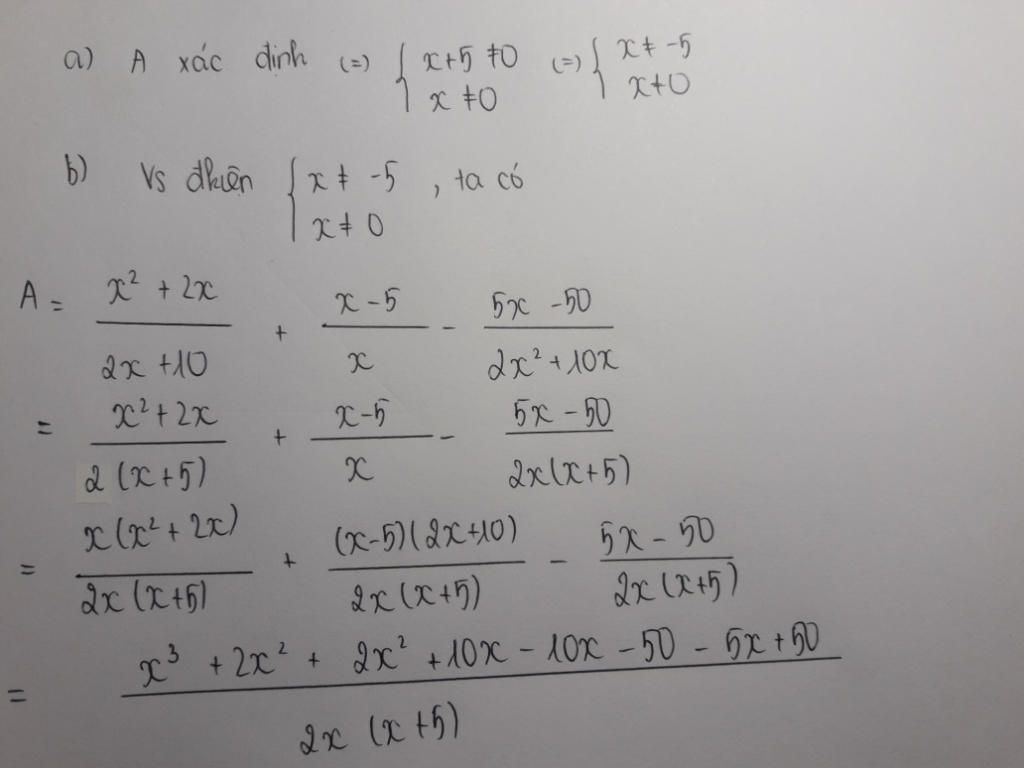 a) A xác định (=) { x+5 ≠0 (=) { x ≠ -5
x ≠0 x≠0
b) Vs đkiện { x ≠ -5 , ta có
x ≠ 0
A = (x² + 2x)/(2x +10) + (x - 5)/x - (5x - 50)/(2x² + 10x)
= (x² + 2x)/(2 (x+5)) + (x-5)/x - (5x - 50)/(2x(x+5))
= (x(x² + 2x))/(2x (x+5)) + ((x-5)(2x+10))/(2x (x+5)) - (5x - 50)/(2x (x+5))
= (x³ + 2x² + 2x² +10x - 10x - 50 - 5x + 50)/(2x (x +5))